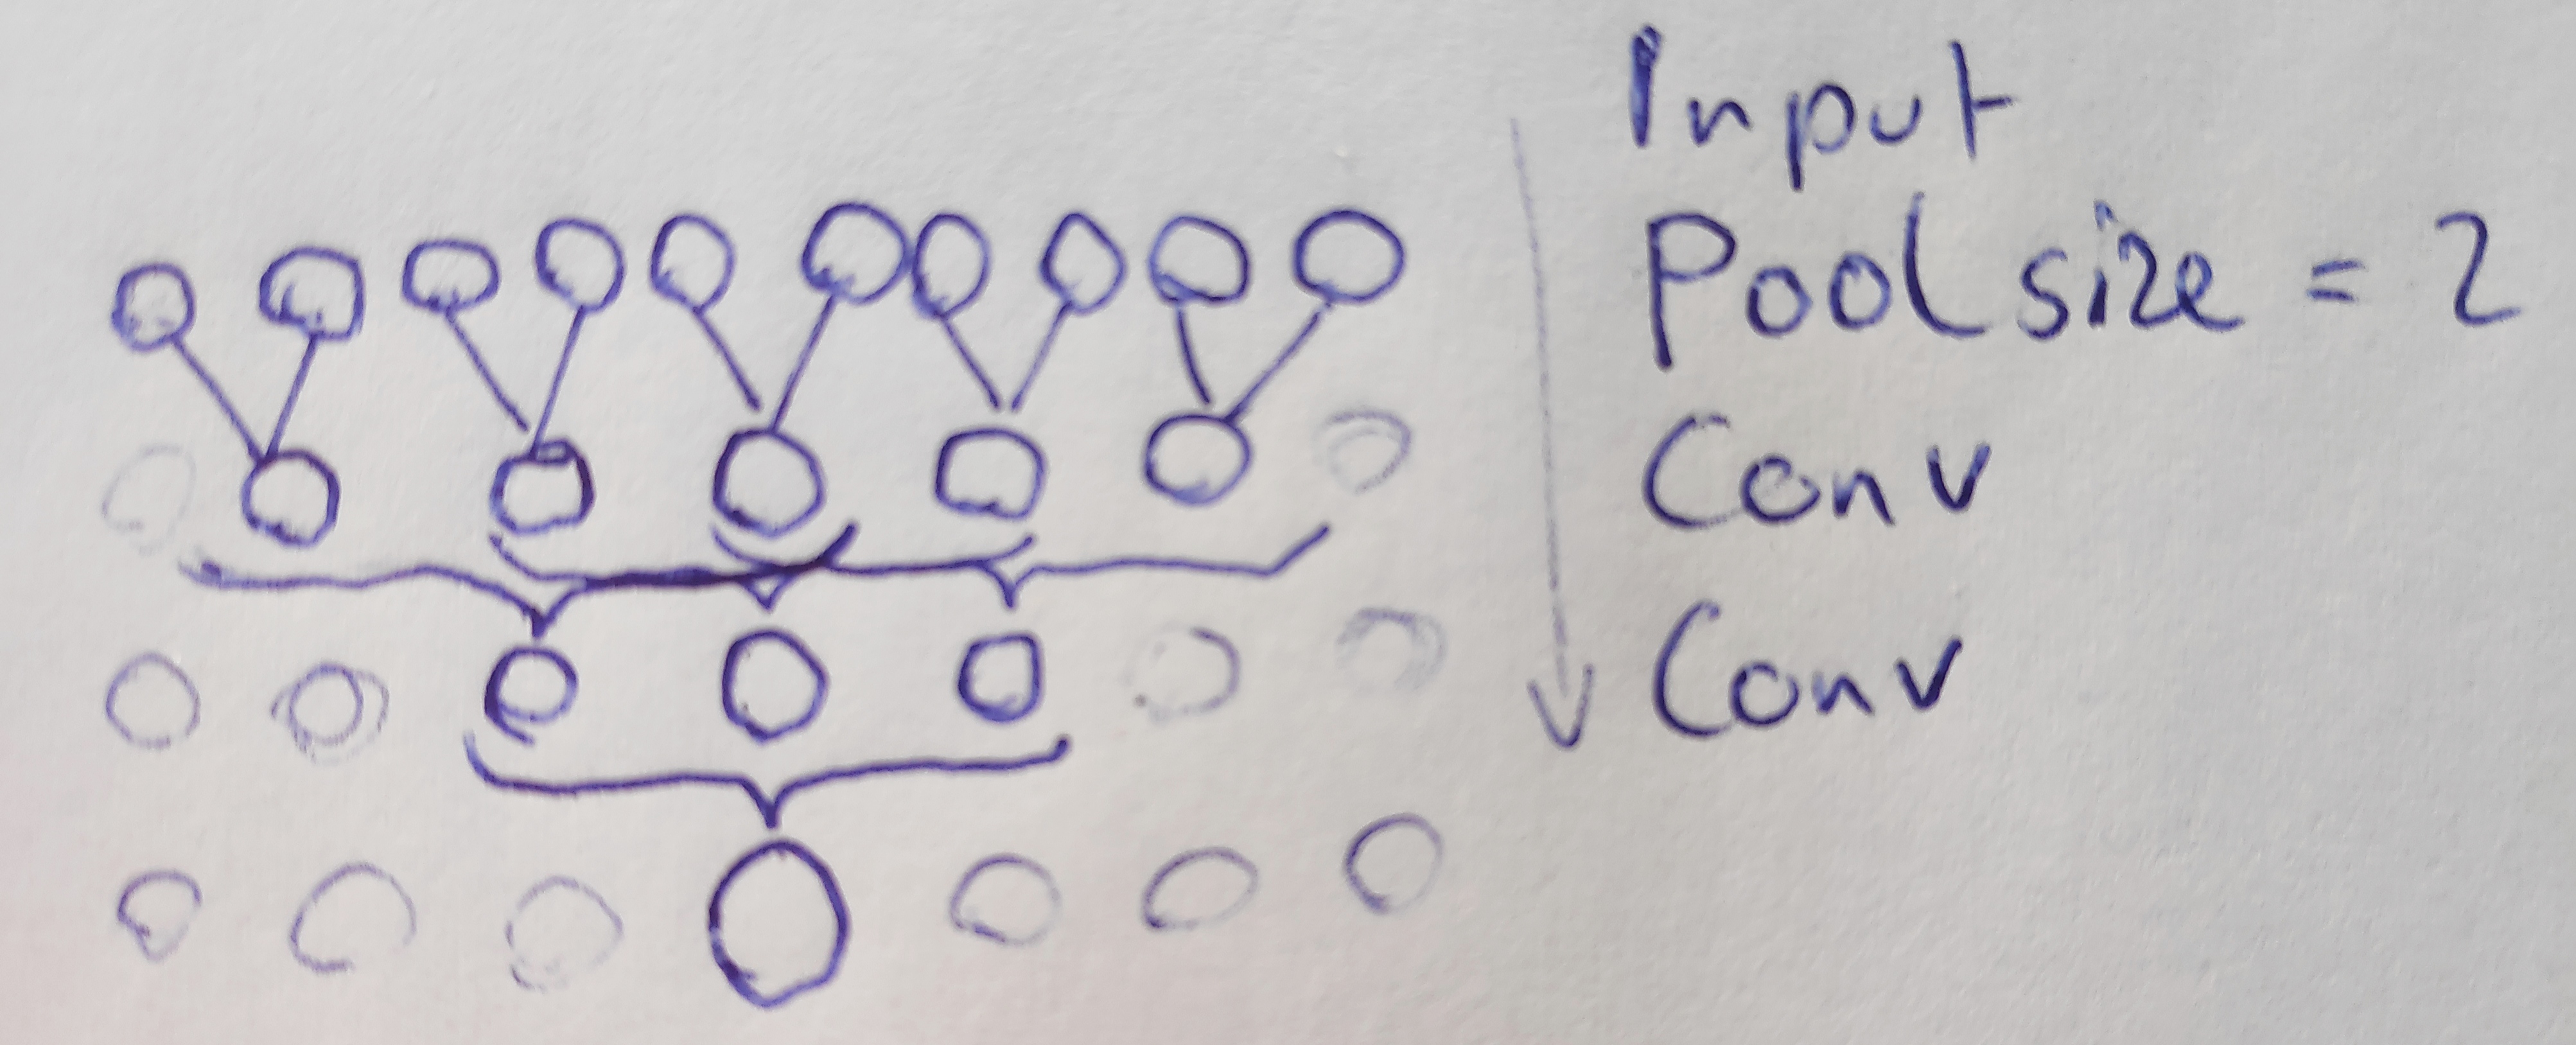 Input
Pool size = 2
Conv
Conv